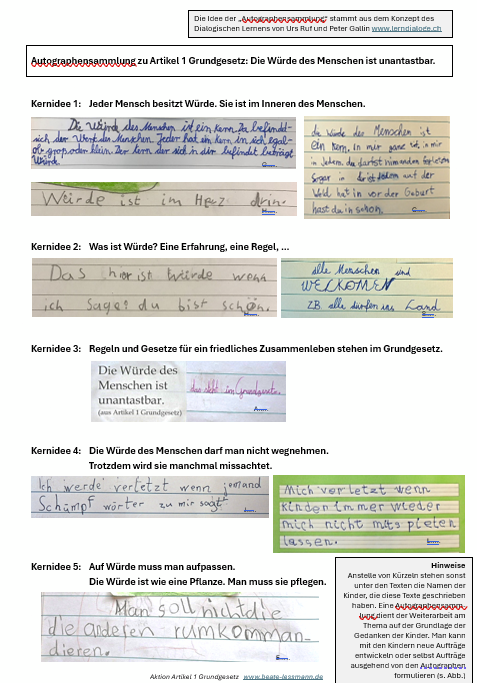 Die Idee der „Autographensammlung“ stammt aus dem Konzept des
Dialogischen Lernens von Urs Ruf und Peter Gallin www.lerndialoge.ch
Autographensammlung zu Artikel 1 Grundgesetz: Die Würde des Menschen ist unantastbar.
Kernidee 1: Jeder Mensch besitzt Würde. Sie ist im Inneren des Menschen.
Die Würde des Menschen ist ein Kern. Da befindet-
sich der Wert des Menschen. Jeder hat ein Kern in sich egal-
ob gros oder klein. Der kern der sich in dir befindet beträgt
Würde
die würde des Menschen ist
ein Kern, in mir ganz tief in mir
in jedem. du darfst nimanden
Sogar in auf der
Welt hat in vor der Geburt
hast du in schon.
Würde ist im Herz drin.
Kernidee 2: Was ist Würde? Eine Erfahrung, eine Regel, ...
Das hir ist würde wenn
ich Sage: du bist schön.
alle Menschen sind
WELKOMEN
ZB alle dürfen ins Land
Kernidee 3: Regeln und Gesetze für ein friedliches Zusammenleben stehen im Grundgesetz.
Die Würde des
Menschen ist
unantastbar.
(aus Artikel 1 Grundgesetz)
das steht im Grundgesetz.
Kernidee 4: Die Würde des Menschen darf man nicht wegnehmen.
Trotzdem wird sie manchmal missachtet.
Ich werde verletzt wenn jemand
Schimpf wörter zu mir sagt
Mich verletzt wenn
kinder immer wieder
mich nicht mits pielen
lassen.
Kernidee 5: Auf Würde muss man aufpassen.
Die Würde ist wie eine Pflanze. Man muss sie pflegen.
Man soll nicht die
die anderen rumkomman-
dieren.
Hinweise
Anstelle von Kürzeln stehen sonst
unter den Texten die Namen der
Kinder, die diese Texte geschrieben
haben. Eine Autographensamm-
lung dient der Weiterarbeit am
Thema auf der Grundlage der
Gedanken der Kinder. Man kann
mit den Kindern neue Aufträge
entwickeln oder selbst Aufträge
ausgehend von den Autographen
formulieren (s. Abb.)
Aktion Artikel 1 Grundgesetz www.beate-lessmann.de